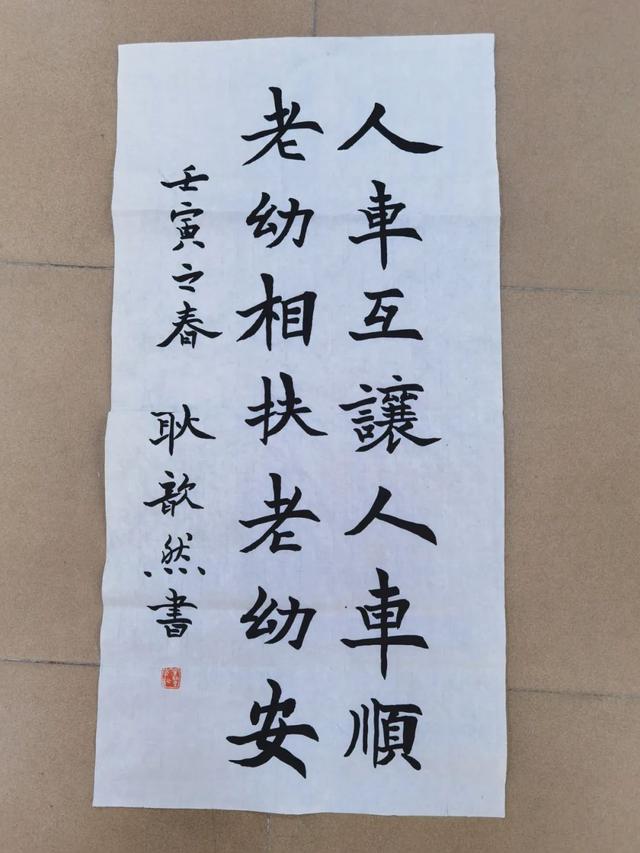 人車互讓人車順
老幼相扶老幼安
壬寅之春 耿歆然書